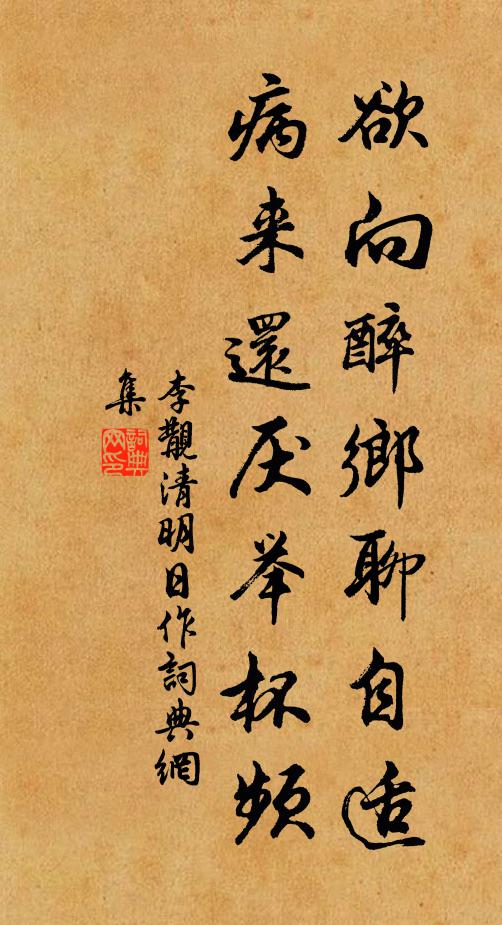 欲向醉鄉聊自适
病来還厌举杯頻
李覯清明日作詞典網
集
詞典
网印